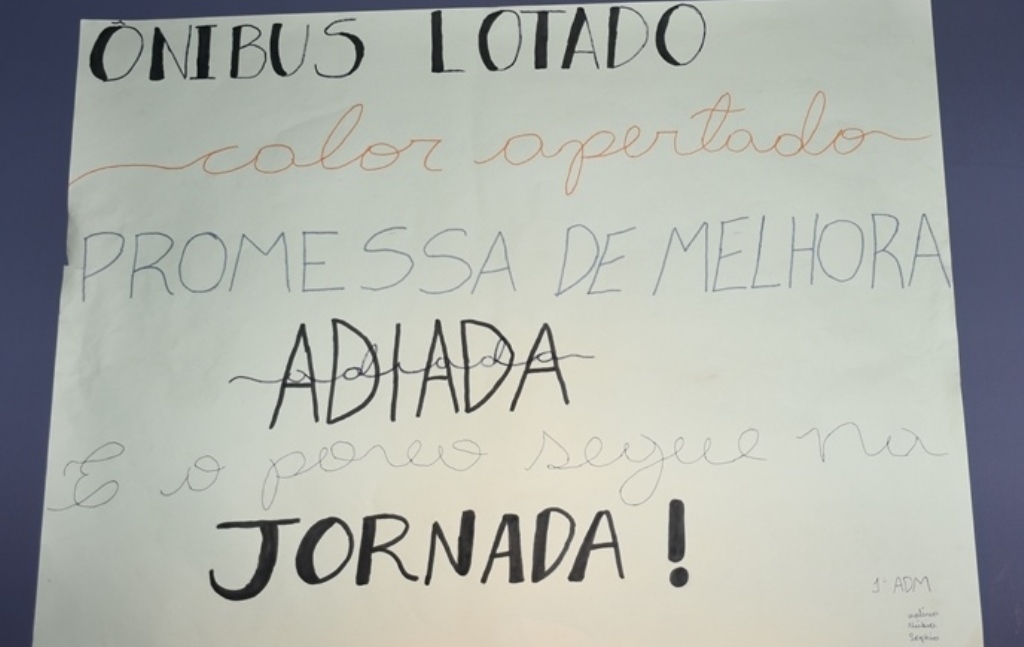 ÔNIBUS LOTADO
calor apertado
PROMESSA DE MELHORA
ADIADA
E o povo segue na
JORNADA!
1º ADM